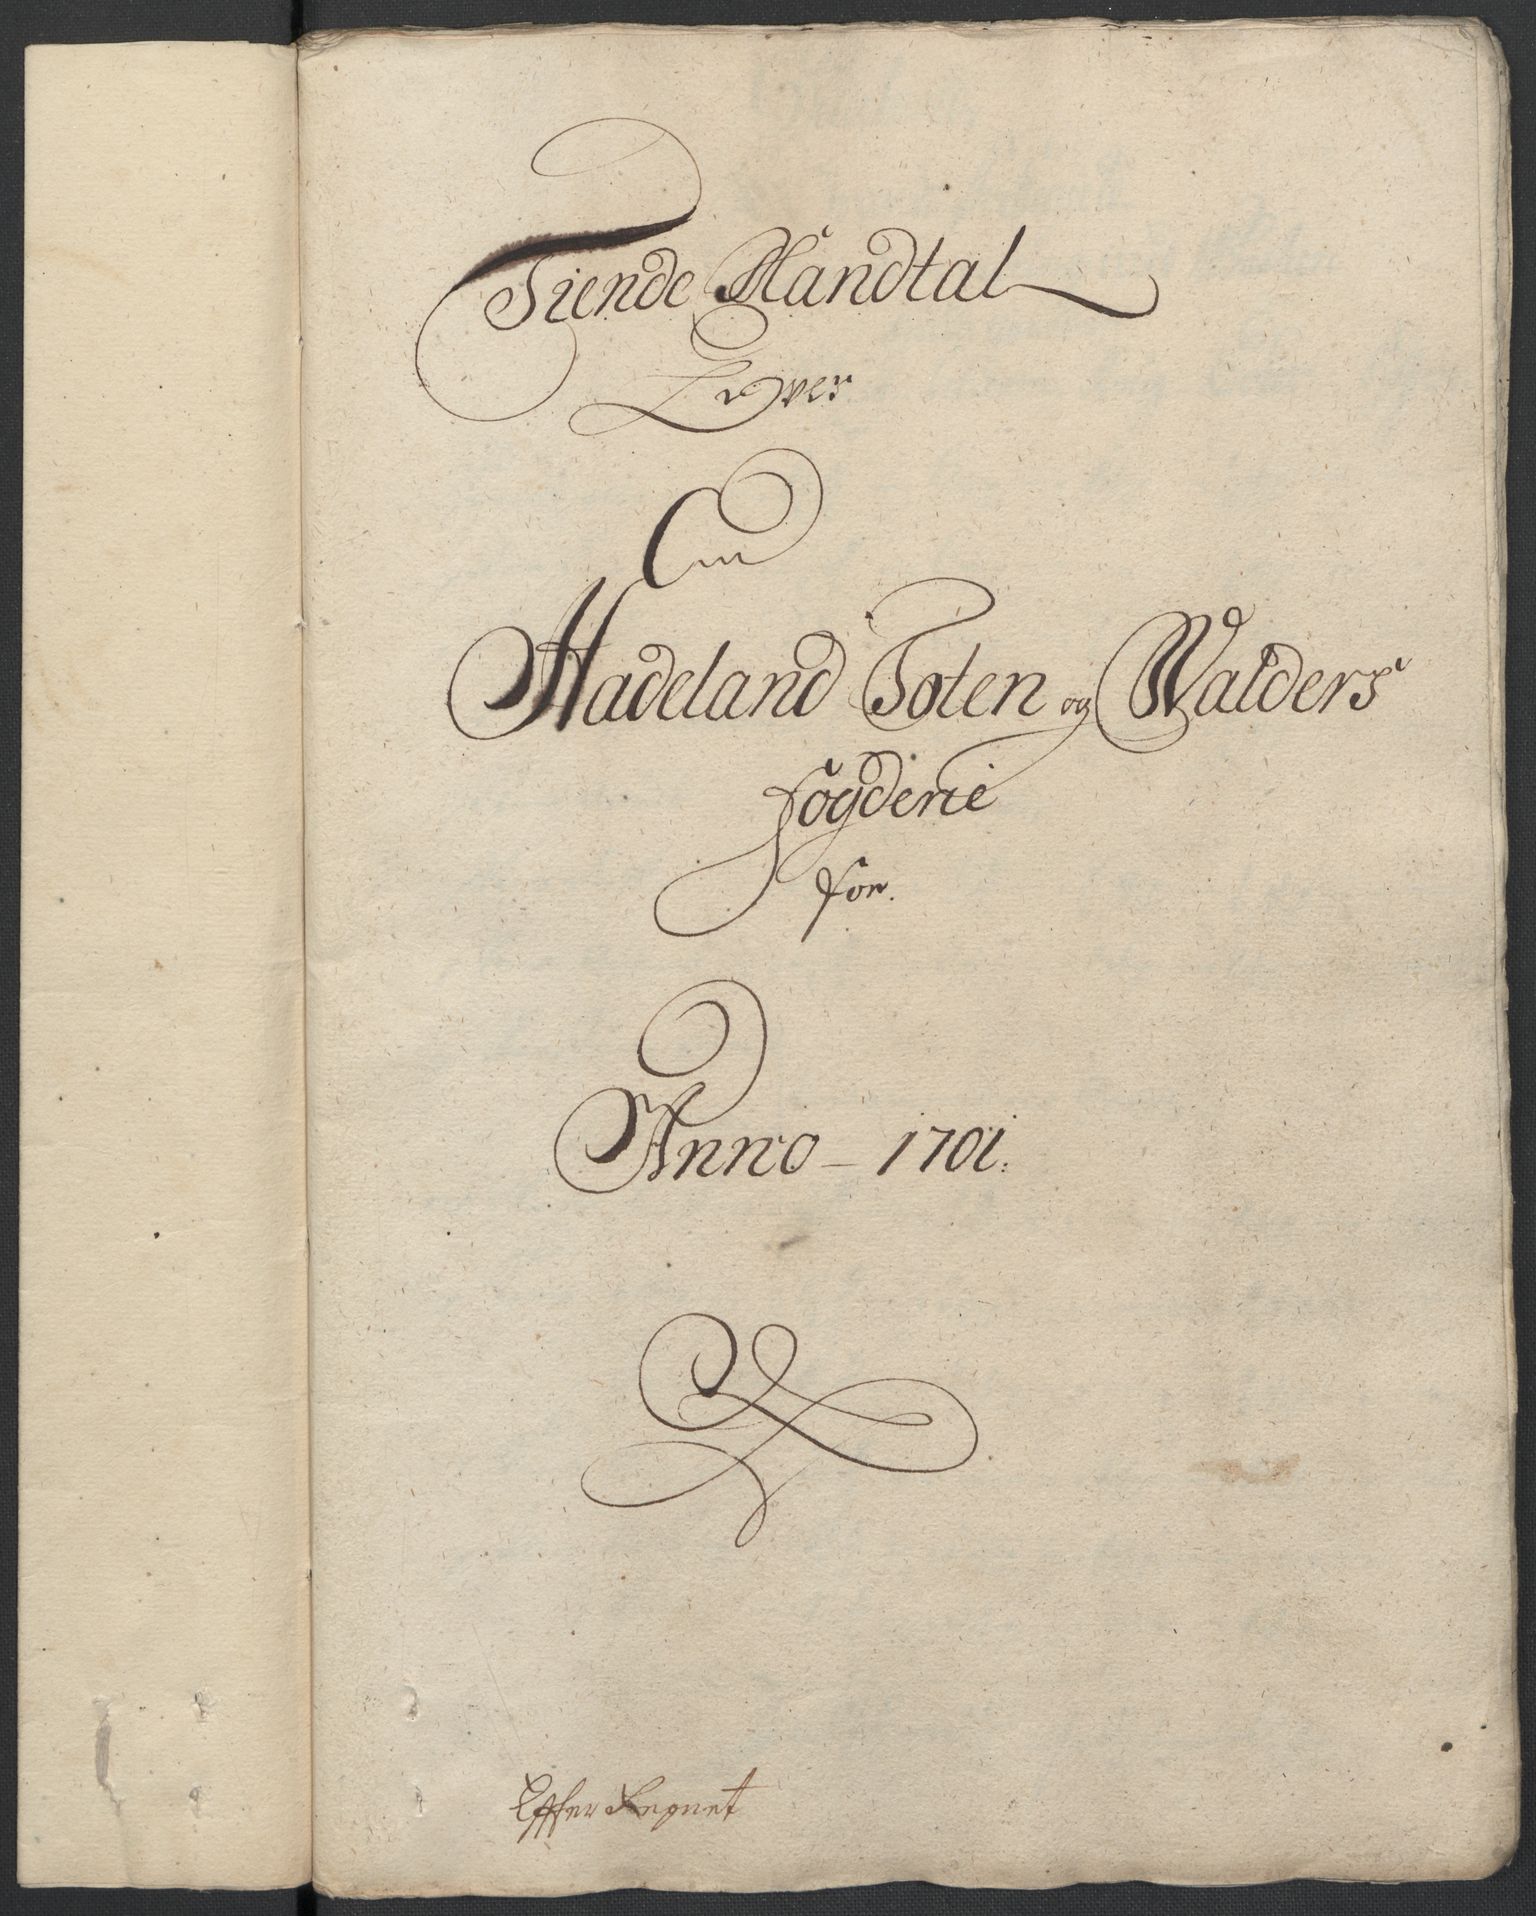 Tiende Mandtal
Over
Hadeland Toten og Walders
fögderie
for.
Anno - 1701.
Effter Regnet